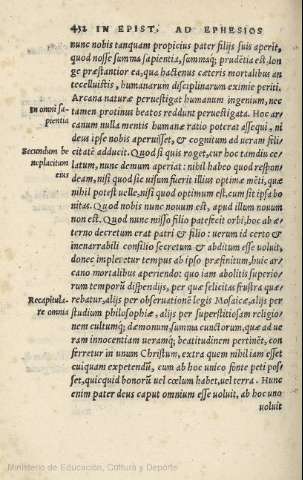 432 IN EPIST. AD EPHESIOS
nunc nobis tanquam propicius pater filijs suis aperit,
quod nosse summa sapientia, summaq; prudētia est, lon
ge præstantior ea, qua hactenus cæteris mortalibus an
tecelluistis, humanarum disciplinarum eximie periti.
Arcana naturæ peruestigat humanum ingenium, nec
tamen protinus beatos reddunt peruestigata. Hoc ar/
In omni sa-
pientia
canum nulla mentis humanæ ratio poterat assequi, ni
deus ipse nobis aperuisset, & cognitum ad ueram felici
Secundum be
neplacitum
eius
citatē adducit. Quod si quis roget, cur hoc tandiu ce/
latum, nunc demum aperiat: nihil habeo quod respon/
deam, nisi quod sic uisum fuerit illius optimæ mēti, quæ
nihil potest uelle, nisi quod optimum est, cum sit ipsa bo
nitas. Quod nobis nunc nouum est, apud illum nouum
non est. Quod nunc misso filio patefecit orbi, hoc ab æ/
terno decretum erat patri & filio: uerum id certo &
inenarrabili consilio secretum & abditum esse uoluit,
donec impleretur tempus ab ipso præfinitum, huic ar/
cano mortalibus aperiendo: quo iam abolitis superio/
rum temporū dispendijs, per quæ felicitas frustra quæ
Recapitula-
re omnia
rebatur, alijs per obseruationē legis Mosaicæ, alijs per
studium philosophiæ, alijs per superstitiosam religio/
nem cultumq; dæmonum, summa cunctorum, quæ ad ue
ram innocentiam ueramq; beatitudinem pertinēt, con
ferretur in unum Christum, extra quem nihil iam esset
cuiquam expetendū, cum ab hoc unico fonte peti pos/
set, quicquid bonorū uel cœlum habet, uel terra. Hunc
enim pater deus caput omnium esse uoluit, ab hoc uno
uoluit
Ministerio de Educación, Cultura y Deporte